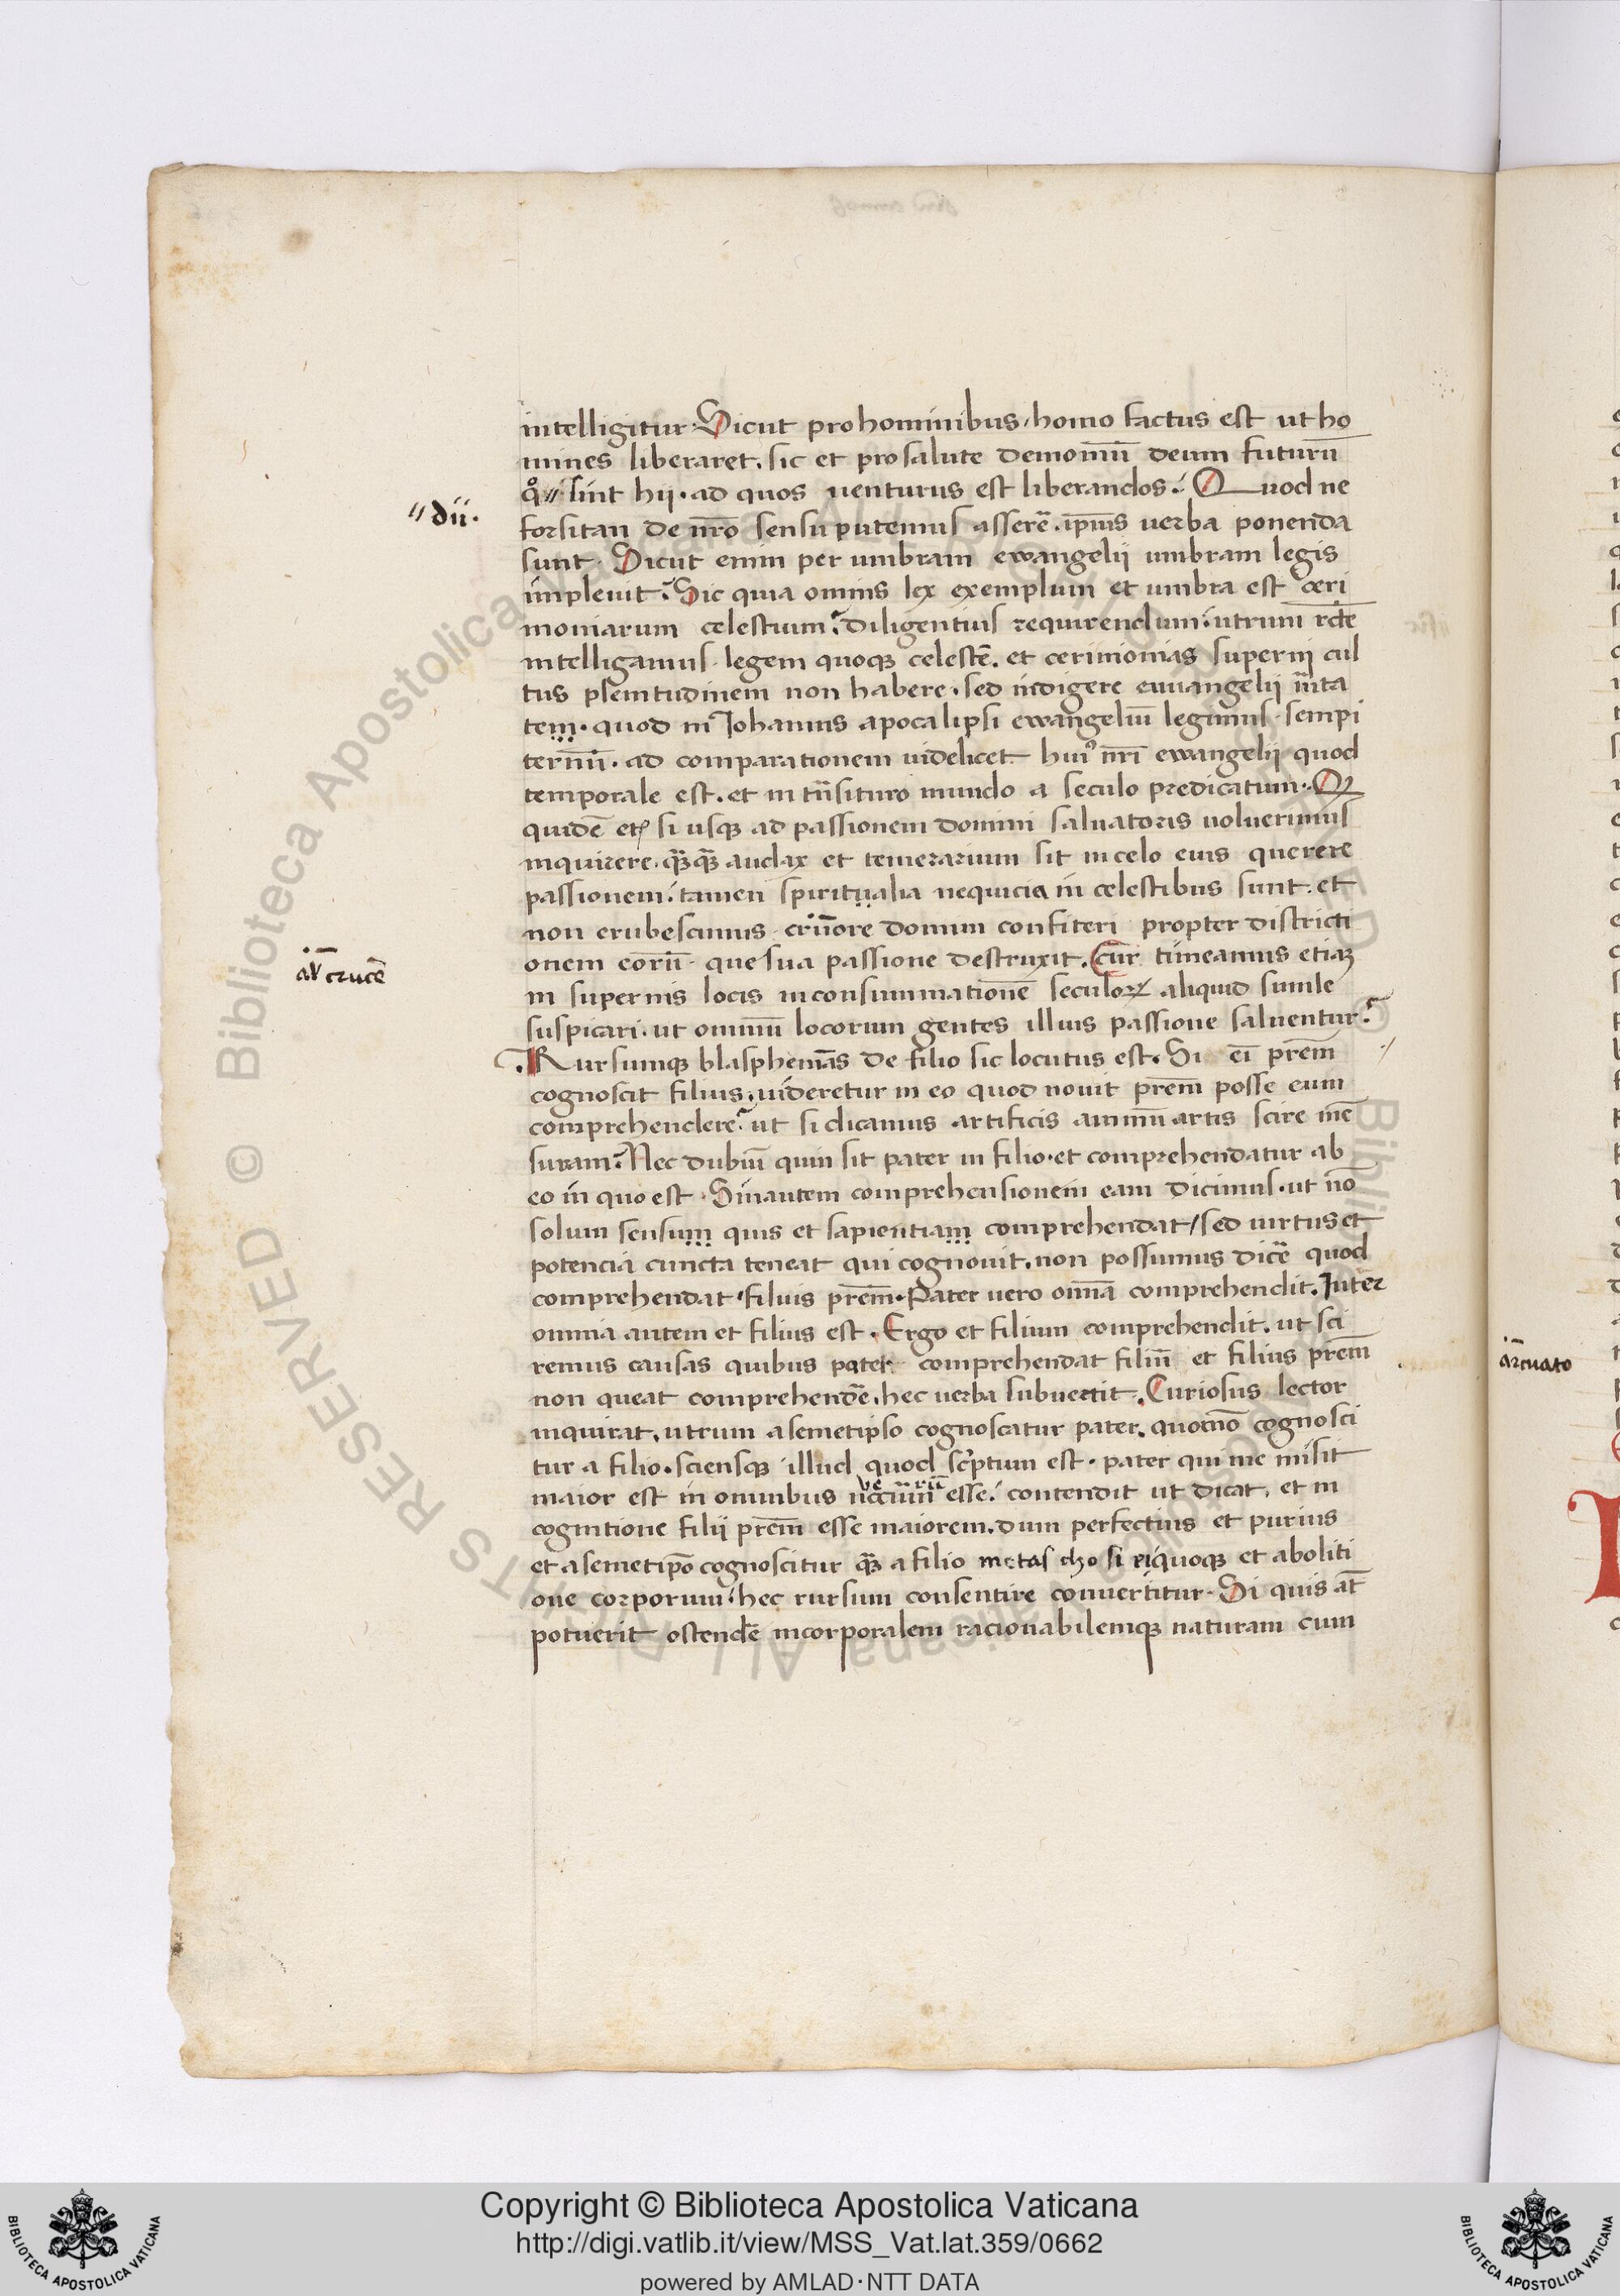 intelligitur. Sicut pro hominibus homo factus est ut ho
mines liberaret. sic et pro salute demoniū deum futurū
qͦ // sint hij. ad quos uenturus est liberandos. Quod ne
// dii.
forsitan de nr̄o sensu putemus asserē. ip̄ius uerba ponenda
sunt. Sicut enim per umbram ewangelii umbram legis
impleuit. Sic quia omnis lex exemplum et umbra est ceri
moniarum celestium. diligentius requirendum. utrum rc̄te
intelligamus. legem quoqꝫ celestē. et cerimonias superni cul
tus plenitudinem non habere. sed indigere euuangelij
tem. quod in Johannis apocalipsi ewangeliū legimus. sempi
ternū. ad comparationem uidelicet huiꝰ nr̄i ewangelij quod
temporale est. et in trāsituro mundo a seculo predicatum.
quidē si usqꝫ ad passionem domini saluatoris uoluerimus
inquirere. qͣꝫqͣꝫ audax et temerarium sit in celo eius querere
passionem. tamen spiritualia nequicia in celestibus sunt. et
non erubescimus. domini confiteri propter districti
al' crucē
onem eorū. que sua passione destruxit. Cur timeamus etiaꝫ
in supernis locis in consummationē seculoꝝ aliquid simile
suspicari. ut omniū locorum gentes illius passione saluentur.
Rursumqꝫ blasphemās de filio sic locutus est. Si ei prēm
cognoscit filius. uideretur in eo quod nouit prēm posse eum
comprehendere. ut si dicamus artificis animū artis scire mē
suram. Nec dubiū quin sit pater in filio. et comprehendatur ab
eo in quo est. Sin autem comprehensionem eam dicimus. ut nō
solum sensum quis et sapientiam comprehendat / sed uirtus et
potencia cuncta teneat qui cognouit. non possumus dicē quod
comprehendat filius prēm. Pater uero omīa comprehendit. Inter
omnia autem et filius est. Ergo et filium comprehendit. ut sci
remus causas quibus pater comprehendat filiū et filius prēm
non queat comprehendē. hec uerba subuertit. Curiosus lector
inquirat. utrum a semetipso cognoscatur pater. quomō cognosci
tur a filio. sciensqꝫ illud quod scͥptum est. pater qui me misit
maior est in omnibus esse. contendit ut dicat. et in
cognitione filij prēm esse maiorem. dum perfectius et purius
et a semetip̄o cognoscitur qͣꝫ a filio metas cho si ei quoqꝫ et aboliti
one corporum. hec rursum consentire conuertitur. Si quis at̄
potuerit ostendē incorporalem racionabilemqꝫ naturam cum
Copyright © Biblioteca Apostolica Vaticana
http://digi.vatlib.it/view/MSS_Vat.lat.359/0662
powered by AMLAD·NTT DATA
BIBLIOTECA APOSTOLICA VATICANA
BIBLIOTECA APOSTOLICA VATICANA